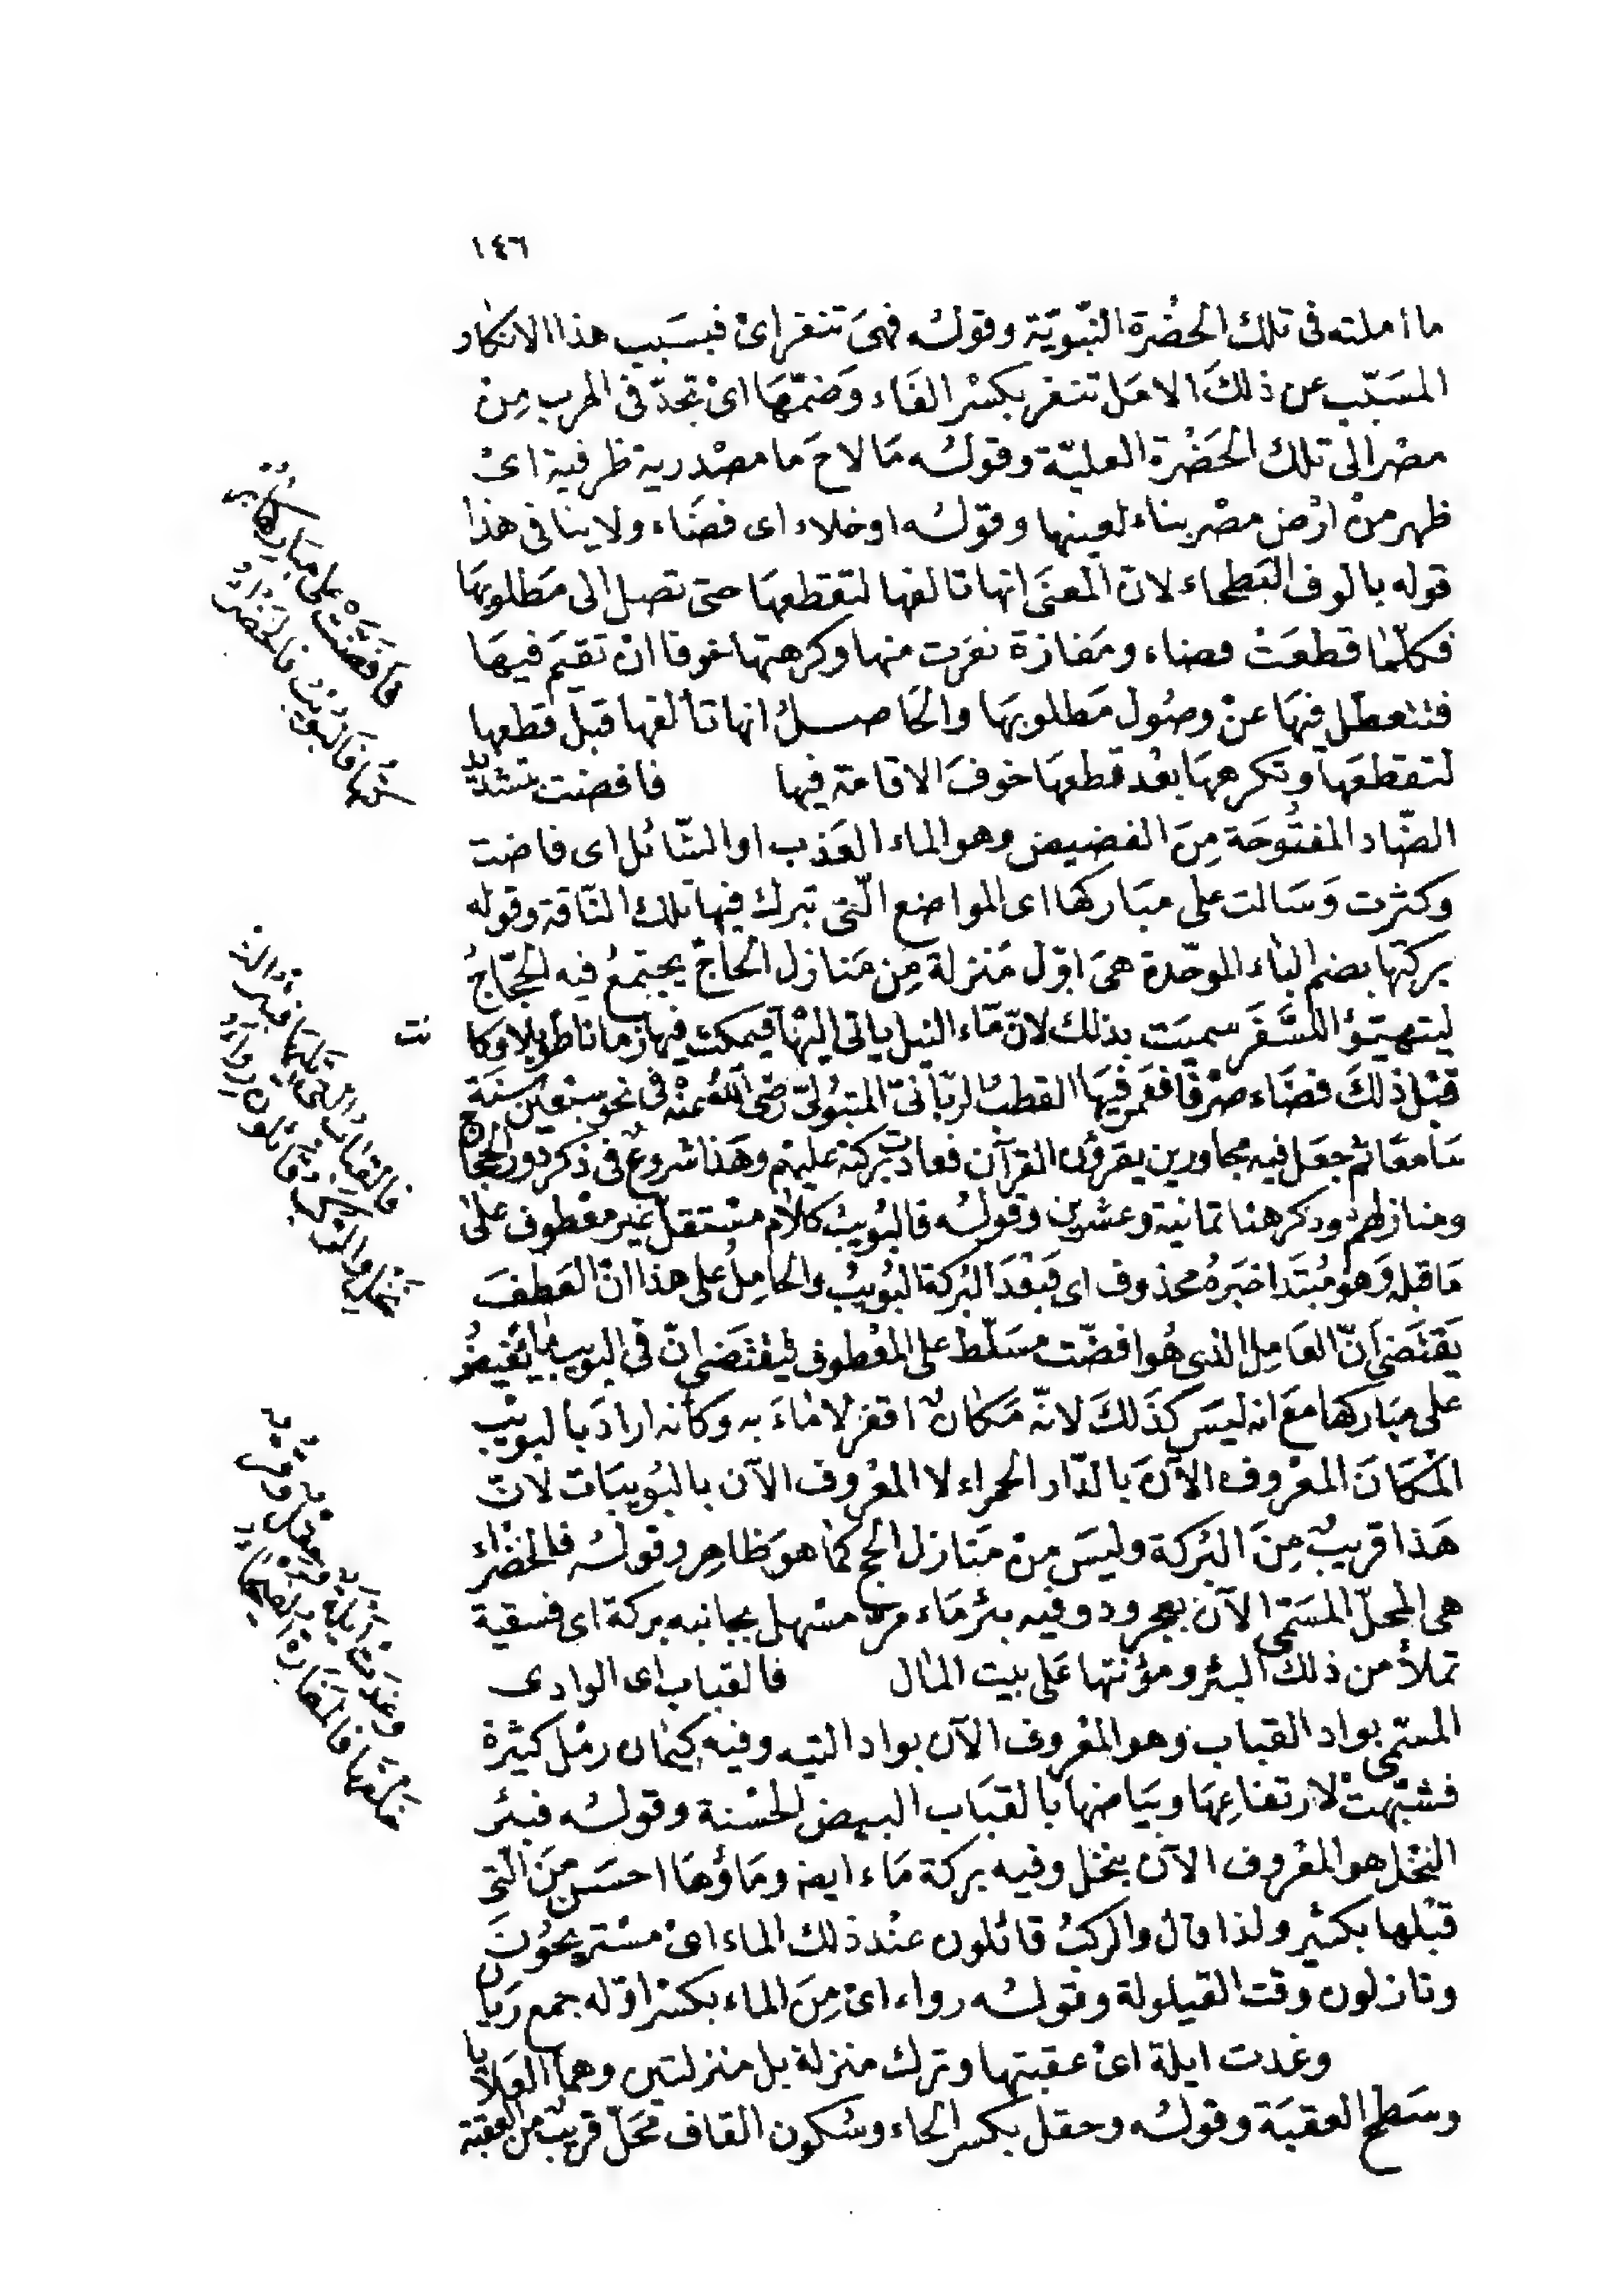 ١٤٦
ما املته فى تلك الحضْرة النّبويّة وقولُه فهىَ تنفر اىْ فبسَبب هذا الانكار
المسَبّب عن ذلكَ الامَل تنفر بكسْر الفَاء وَضمّهَا اىْ تجدّ فى الهرب مِنْ
مصْر الى تلك الحَضْرة العليّة وقولُه مَا لاحَ مَا مصْدرية ظرفية اىْ
ظهر منْ ارْض مصْر بناء لعينها وقوْلُه اوخلاء اى فضَاء ولا ينافى هذا
قوله بالوف البَطحاء لانّ المعنَى انها تالفها لتقطعهَا حتى تصل الى مَطلوبهَا
فكلّما قطعَتْ فضاء ومَفازة نفرَت منها وكرهتها خوفا انْ تقيَم فيهَا
فتتعطّل فيهَا عنْ وصُول مَطلوبهَا والحَاصلُ انها تألفها قبل قطعها
لتقطعَها وتكرههَا بعْد قطعهَا خوفَ الاقامة فيها فافضت بتشديد
الضّاد المفتُوحَة مِنَ الفضيض وهو الماء العَذب او السّائل اى فاضت
وكثرت وَسَالت على مبَاركها اى المواضع الّتى تبرك فيها تلك النّاقة وقوله
بركتها بضم الباء الموحّدة هىَ اوّل مَنزلة مِن مَنازل الحاجّ يجتمعُ فيه الحجّاجُ
ليتهيّؤا للسَّفَر سميَت بذلك لانّ مَاء النيل ياتى اليْهَا فيمكث فيها زمانا طويلا وكا نت
قبْل ذلكَ فضَاء صرْفًا فعَمر فيهَا القطبُ الربّانىّ المتبُولىّ رضى الله عنْه فى نحو سبْعين سَنَة
سَامعَا ثم جعَل فيه مجاورين يقرؤن القرآن فعادت بركته عليهْم وهَذا شروعٌ فى ذكر دور الحجاج
ومنازلهم وذكر هنا ثمانية وعشرين وقولُه فالبُويبُ كلاَم مسْتقلّ غير معْطوف على
مَا قبله وَهو مُبتَدا خبَرهُ محذوف اى فبَعْدَ البْركة البُويبُ والحامِلُ على هذا انّ العَطفَ
يَقتَضى انّ العَامِل الذى هُو افضّت مسَلّط على المعْطوف فيقتَضى انّ فى البويب ما يَفيضُ
على مبَاركها معَ انه ليسَ كذَلكَ لانّه مَكانٌ اقفرُ لا مَاءَ به وكأنه ارادَ بالبويْب
المَكانَ المعْروف الآنَ بالدّار الحمراء لا المعْروف الآن بالبُويبَات لانّ
هَذا قريبٌ مِنَ البْركة وليسَ منْ منَازل الحج كما هوَ ظاهِر وقولُه فالخضْراء
هى المحلّ المسَمّى الآن بعجرود وفيه بئر مَاء مرّ مسْهل بجانبه بركة اى فسقية
تملأ من ذلك البئر ومؤنتها عَلى بيت المال فالقباب اى الوادى
المسَمّى بواد القباب وهو المعْروف الآن بواد التيه وفيه كيمان رمْل كثيرة
فشبّهتْ لارتفاعِهَا وبيَاضها بالقبَاب البيض الحسْنة وقولُه فبئر
النخْل هو المعْروف الآن بنخْل وفيه بركة مَاء ايضا ومَاؤهَا احسَن مِنَ الّتى
قبْلها بكثير ولذا قال والركبُ قائلون عنْد ذلك الماء اىْ مسْتريحُونَ
ونازلون وقت القيلولة وقولُه رواء اىْ مِنَ الماء بكسْر اوّله جمع ريّان
وغدت ايلة اىْ عقبتها وترك منزلة بل منزلتين وهما العَلايا
وسَطح العقبَة وقولُه وحقل بكسر الحاء وسُكون القاف محَلّ قريبٌ من العقبة
فأفضّتْ على مباركها بر
كتُها فالبُوَيْبُ فالخضْراءُ
فالقبابُ التى تليها فبئر النـ
خْل والركبُ قائلون رواءُ
وغدَتْ ايلة وحقْل وقرّ
خلفها فالمغارة الفيحاءُ